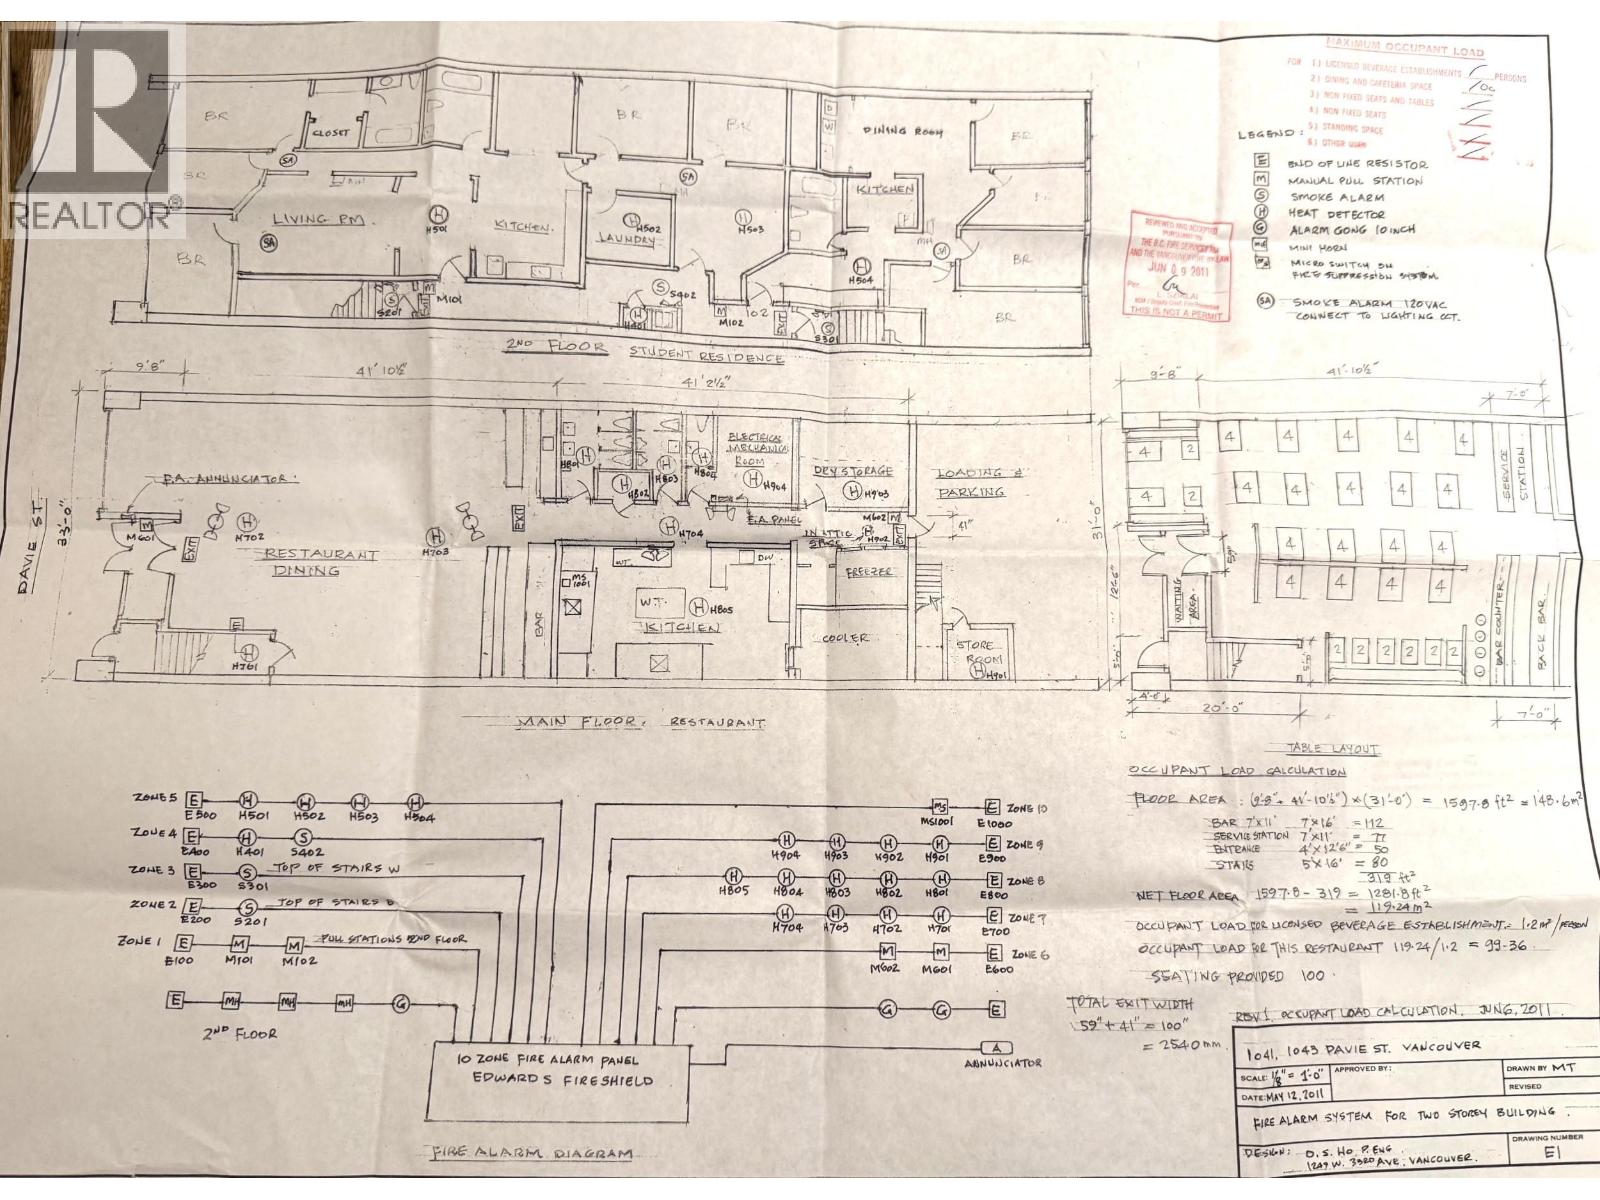 REALTOR®
MAXIMUM OCCUPANT LOAD
FOR 1.) LICENSED BEVERAGE ESTABLISHMENTS PERSONS
2.) DINING AND CAFETERIA SPACE 100
3.) NON FIXED SEATS AND TABLES
4.) NON FIXED SEATS
5.) STANDING SPACE
6.) OTHER USES
LEGEND:
E END OF LINE RESISTOR
M MANUAL PULL STATION
S SMOKE ALARM
H HEAT DETECTOR
G ALARM GONG 10 INCH
MH MINI HORN
MS MICRO SWITCH ON
FIRE SUPPRESSION SYSTEM
SA SMOKE ALARM 120VAC
CONNECT TO LIGHTING CCT.
REVIEWED AND ACCEPTED
PURSUANT TO
THE B.C. FIRE SERVICES ACT
AND THE VANCOUVER FIRE BY-LAW
JUN 09 2011
Per.
THIS IS NOT A PERMIT
BR
CLOSET
BR
BR
DINING ROOM
BR
BR
LIVING RM.
KITCHEN
LAUNDRY
KITCHEN
BR
BR
BR
SA
SA
SA
SA
H501
H502
H503
H504
M101
S201
S402
H401
M102
EXIT
S301
D
W
MH
2ND FLOOR STUDENT RESIDENCE
9'8"
41' 10½"
41' 2½"
DAVIE ST.
33'-0"
F.A. ANNUNCIATOR.
M601
EXIT
H702
RESTAURANT
DINING
H703
EXIT
H801
H802
H803
H804
ELECTRICAL
MECHANICAL
ROOM
H904
DRY STORAGE
H903
LOADING &
PARKING
F.A. PANEL
H704
M602
EXIT
IN ATTIC
SPACE
H902
41"
FREEZER
COOLER
BAR
MS
1001
W.T.
W.T.
DW
H805
KITCHEN
STORE
ROOM
H901
E
H701
MAIN FLOOR. RESTAURANT
9'-8"
41'-10½"
7'-0"
31'-0"
12'6"
5'-0"
59"
4 2
4 4 4 4 4
4 2
4 4 4 4 4
4 4 4 4
4 4 4 4
2 2 2 2 2 2
SERVICE
STATION
WAITING
AREA
BAR COUNTER
BACK BAR
5'-0"
4'-0"
20'-0"
7'-0"
TABLE LAYOUT
OCCUPANT LOAD CALCULATION
FLOOR AREA : (9'-8" + 41'-10½") × (31'-0") = 1597.8 ft² = 148.6 m²
BAR 7'×11' 7'×16' = 112
SERVICE STATION 7'×11' = 77
ENTRANCE 4'×12'6" = 50
STAIRS 5'×16' = 80
319 ft²
NET FLOOR AREA 1597.8 - 319 = 1281.8 ft²
= 119.24 m²
OCCUPANT LOAD FOR LICENSED BEVERAGE ESTABLISHMENT = 1.2 m²/PERSON
OCCUPANT LOAD FOR THIS RESTAURANT 119.24/1.2 = 99.36.
SEATING PROVIDED 100.
TOTAL EXIT WIDTH
59" + 41" = 100"
= 2540 mm.
REV 1. OCCUPANT LOAD CALCULATION. JUN 6, 2011.
ZONE 5 E H H H H
E500 H501 H502 H503 H504
ZONE 4 E H S
E400 H401 S402
ZONE 3 E S TOP OF STAIRS W
E300 S301
ZONE 2 E S TOP OF STAIRS
E200 S201
ZONE 1 E M M PULL STATIONS 2ND FLOOR
E100 M101 M102
E MH MH MH G
2ND FLOOR
MS E ZONE 10
MS1001 E1000
H H H H E ZONE 9
H904 H903 H902 H901 E900
H H H H H E ZONE 8
H805 H804 H803 H802 H801 E800
H H H H E ZONE 7
H704 H703 H702 H701 E700
M M E ZONE 6
M602 M601 E600
G G E
A
ANNUNCIATOR
10 ZONE FIRE ALARM PANEL
EDWARDS FIRESHIELD
FIRE ALARM DIAGRAM
1041, 1043 DAVIE ST. VANCOUVER
SCALE: ⅛" = 1'-0"
APPROVED BY:
DRAWN BY MT
DATE: MAY 12, 2011
REVISED
FIRE ALARM SYSTEM FOR TWO STOREY BUILDING.
DESIGN: D. S. HO P. ENG.
1249 W. 33RD AVE, VANCOUVER.
DRAWING NUMBER
E1